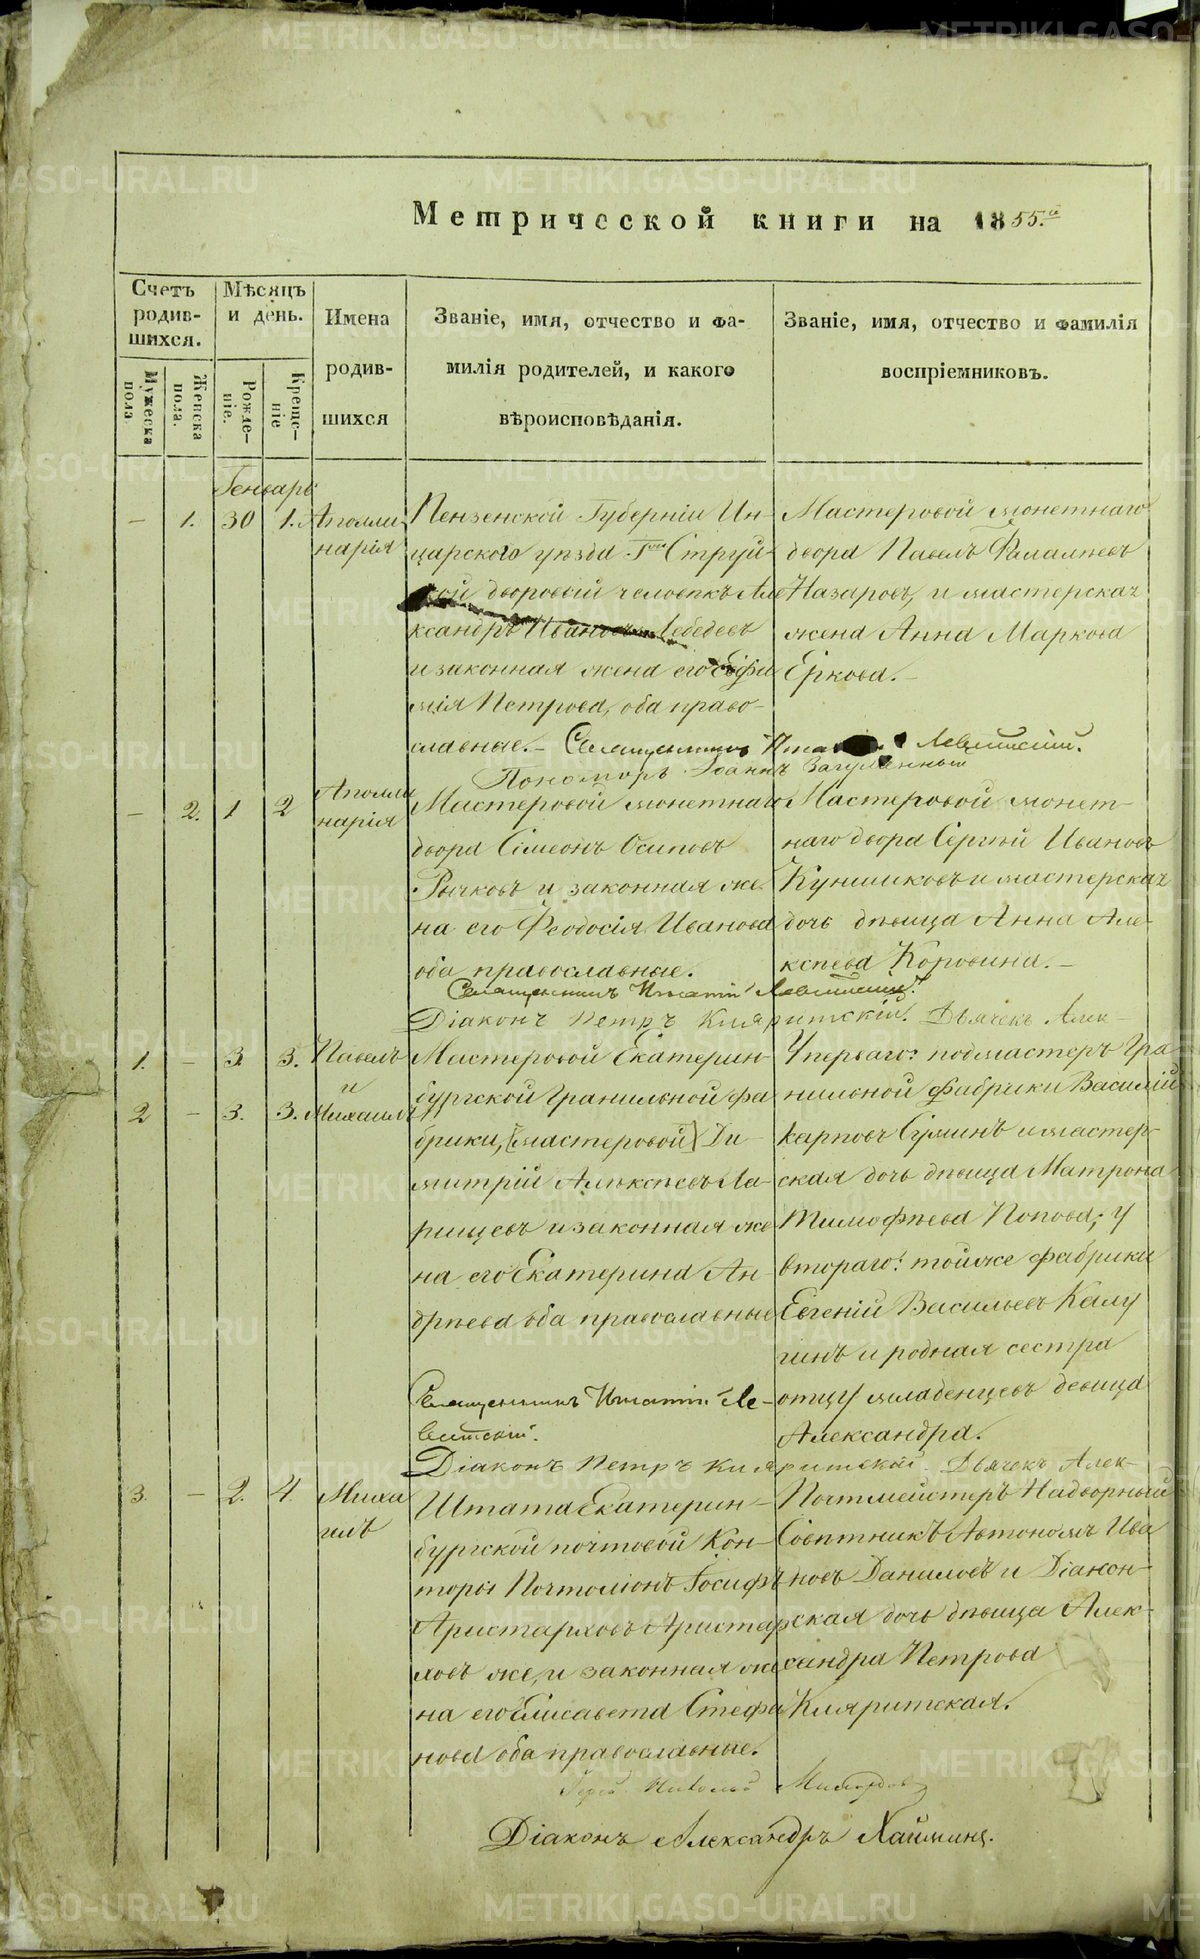 Метрической книги на 1855.й
Счетъ родив-шихся.
Мужеска пола
Женска пола.
Мѣсяцъ и день.
Рожде-ніе.
Креще-ніе
Имена родив-шихся
Званіе, имя, отчество и фа-
милія родителей, и какого
вѣроисповѣданія.
Званіе, имя, отчество и фамилія
воспріемниковъ.
Генварь
– 1. 30 1. Аполли
нарія
Пензенской Губерніи Ин-
царского уѣзда Гна Струй-
кой дворовый человѣкъ Але
ксандръ Ивановъ Лебедевъ
и законная жена его Евфи
мія Петрова, оба право-
славные. –
Мастеровой монетнаго
двора Павелъ Фалалѣевъ
Назаровъ, и мастерская
жена Анна Маркова
Еркова. –
Священникъ Левитскій.
Пономарь Іоаннъ Загулянный
– 2. 1 2 Аполли
нарія
Мастеровой монетнаго
двора Сімеонъ Осиповъ
Рычковъ и законная же
на его Феодосія Иванова
оба православные.
Мастеровой монет-
наго двора Сергѣй Ивановъ
Куншиковъ и мастерская
дочь дѣвица Анна Але-
ксѣева Коровина. –
Священникъ Игнатій Левитскій.
Діаконъ Петръ Кляритскій. Дьячекъ Алек-
1. – 3 3. Павелъ
и
2 – 3. 3. Михаилъ
Мастеровой Екатерин-
бургской Гранильной фа
брики, [мастеровой] Ди-
митрій Алексѣевъ Ла-
рицевъ и законная же
на его Екатерина Ан-
дреева оба православные
У перваго: подмастеръ Гра
нильной фабрики Василій
Карповъ Суминъ и мастер-
ская дочь дѣвица Матрона
Тимофѣева Попова; у
втораго: той же фабрики
Евгеній Васильевъ Калу
гинъ и родная сестра
отцу младенцевъ девица
Александра.
Священникъ Игнатій Ле-
витскій.
Діаконъ Петръ Кляритскій. Дьячекъ Алек-
3. – 2. 4. Миха
илъ
Штата Екатерин-
бургской почтовой Кон-
торы Почтоліонъ Іосифъ
Аристарховъ Аристар
ховъ же, и законная же
на его Елисавета Стефа
нова оба православные.
Почтмейстеръ Надворный
Совѣтникъ Автономъ Ива
новъ Даниловъ и Діакон-
ская дочь дѣвица Алек-
сандра Петрова
Кляритская.
Іерей Николай
Діаконъ Александръ Хайминъ.
METRIKI.GASO-URAL.RU